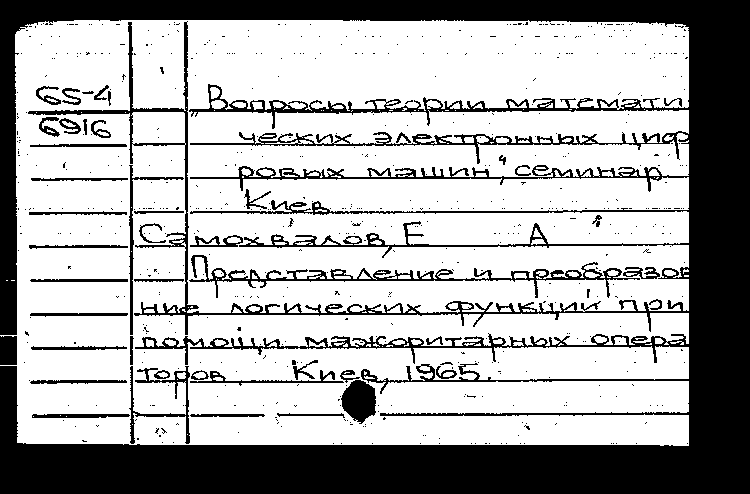 65-4
6916
„Вопросы теории математи
ческих электронных циф
ровых машин“, семинар.
Киев
Самохвалов, Е А
Представление и преобразов
ние логических функций при
помощи мажоритарных опера
торов. Киев, 1965.